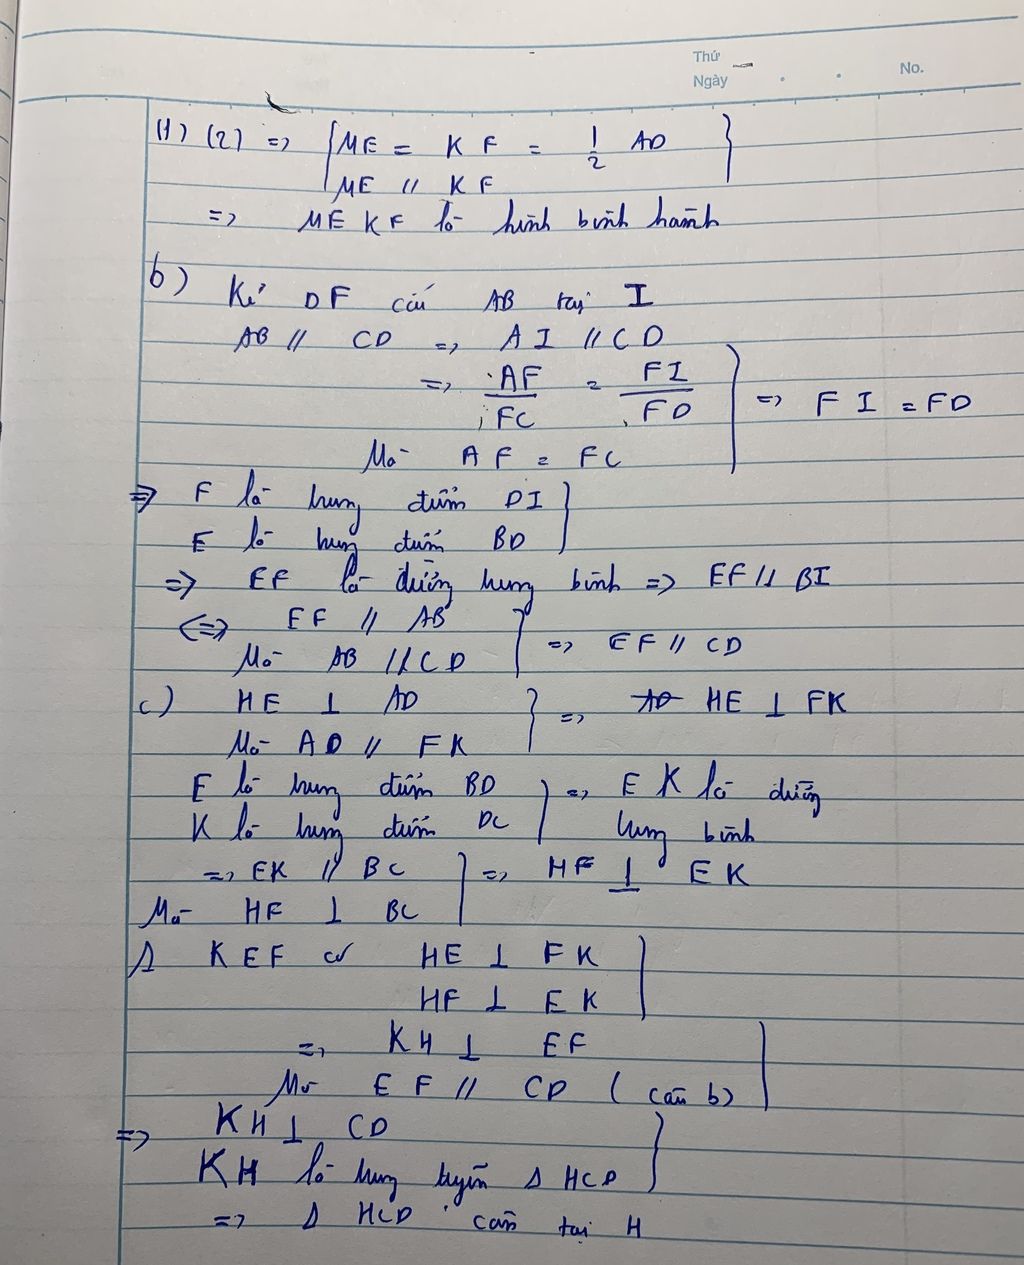 Thứ
Ngày
No.
(1) (2) => { ME = KF = 1/2 AD
ME // KF }
=> MEKF là hình bình hành
b) Kẻ DF cắt AB tại I
AB // CD => AI // CD
=> AF/FC = FI/FD
Mà AF = FC } => FI = FD
=> F là trung điểm DI
E là trung điểm BD }
=> EF là đường trung bình => EF // BI
<=> EF // AB
Mà AB // CD } => EF // CD
c) HE ⊥ AD
Mà AD // FK } => AD HE ⊥ FK
E là trung điểm BD
K là trung điểm DC } => EK là đường trung bình
=> EK // BC
Mà HF ⊥ BC } => HF ⊥ EK
Δ KEF có HE ⊥ FK
HF ⊥ EK }
=> KH ⊥ EF
Mà EF // CD (câu b) }
=> KH ⊥ CD
KH là trung tuyến Δ HCD }
=> Δ HCD cân tại H